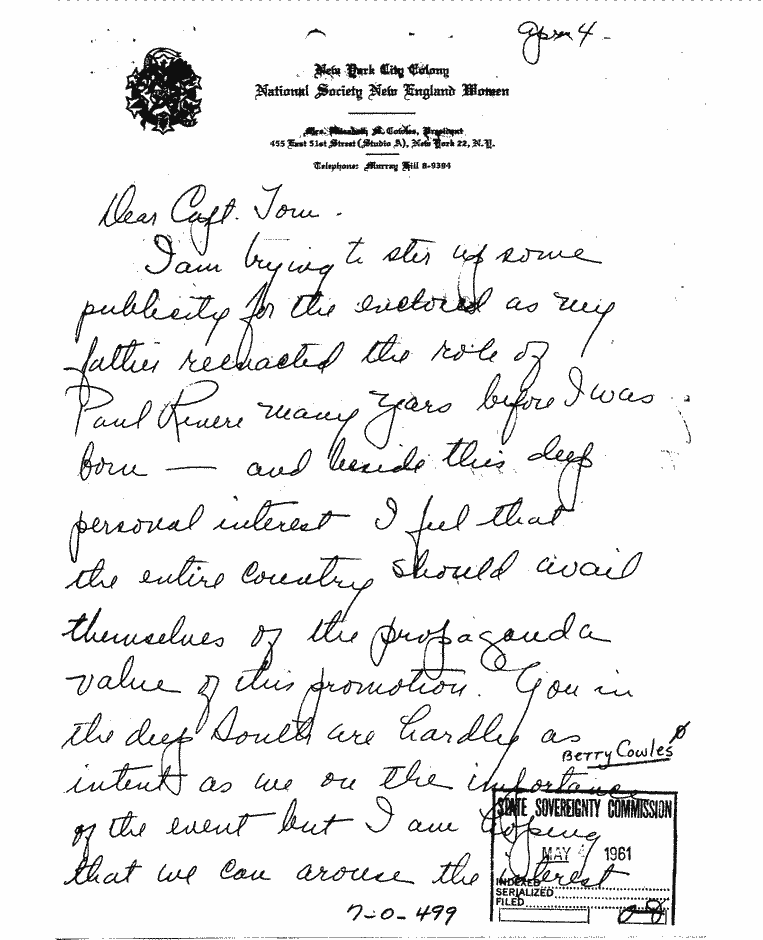 Apr 4 -
New York City Colony
National Society New England Women
Mrs. Elizabeth M. Cowles, President
455 East 51st Street (Studio A), New York 22, N.Y.
Telephone: Murray Hill 8-9384
Dear Capt. Tom.
I am trying to stir up some
publicity for the enclosed as my
father reenacted the role of
Paul Revere many years before I was
born — and beside this deep
personal interest I feel that
the entire country should avail
themselves of the propaganda
value of this promotion. You in
the deep South are hardly as
BETTY Cowles
intent as we on the importance
of the event but I am hoping
that we can arouse the interest
STATE SOVEREIGNTY COMMISSION
MAY 4 1961
INDEXED
SERIALIZED
FILED
7-0-499